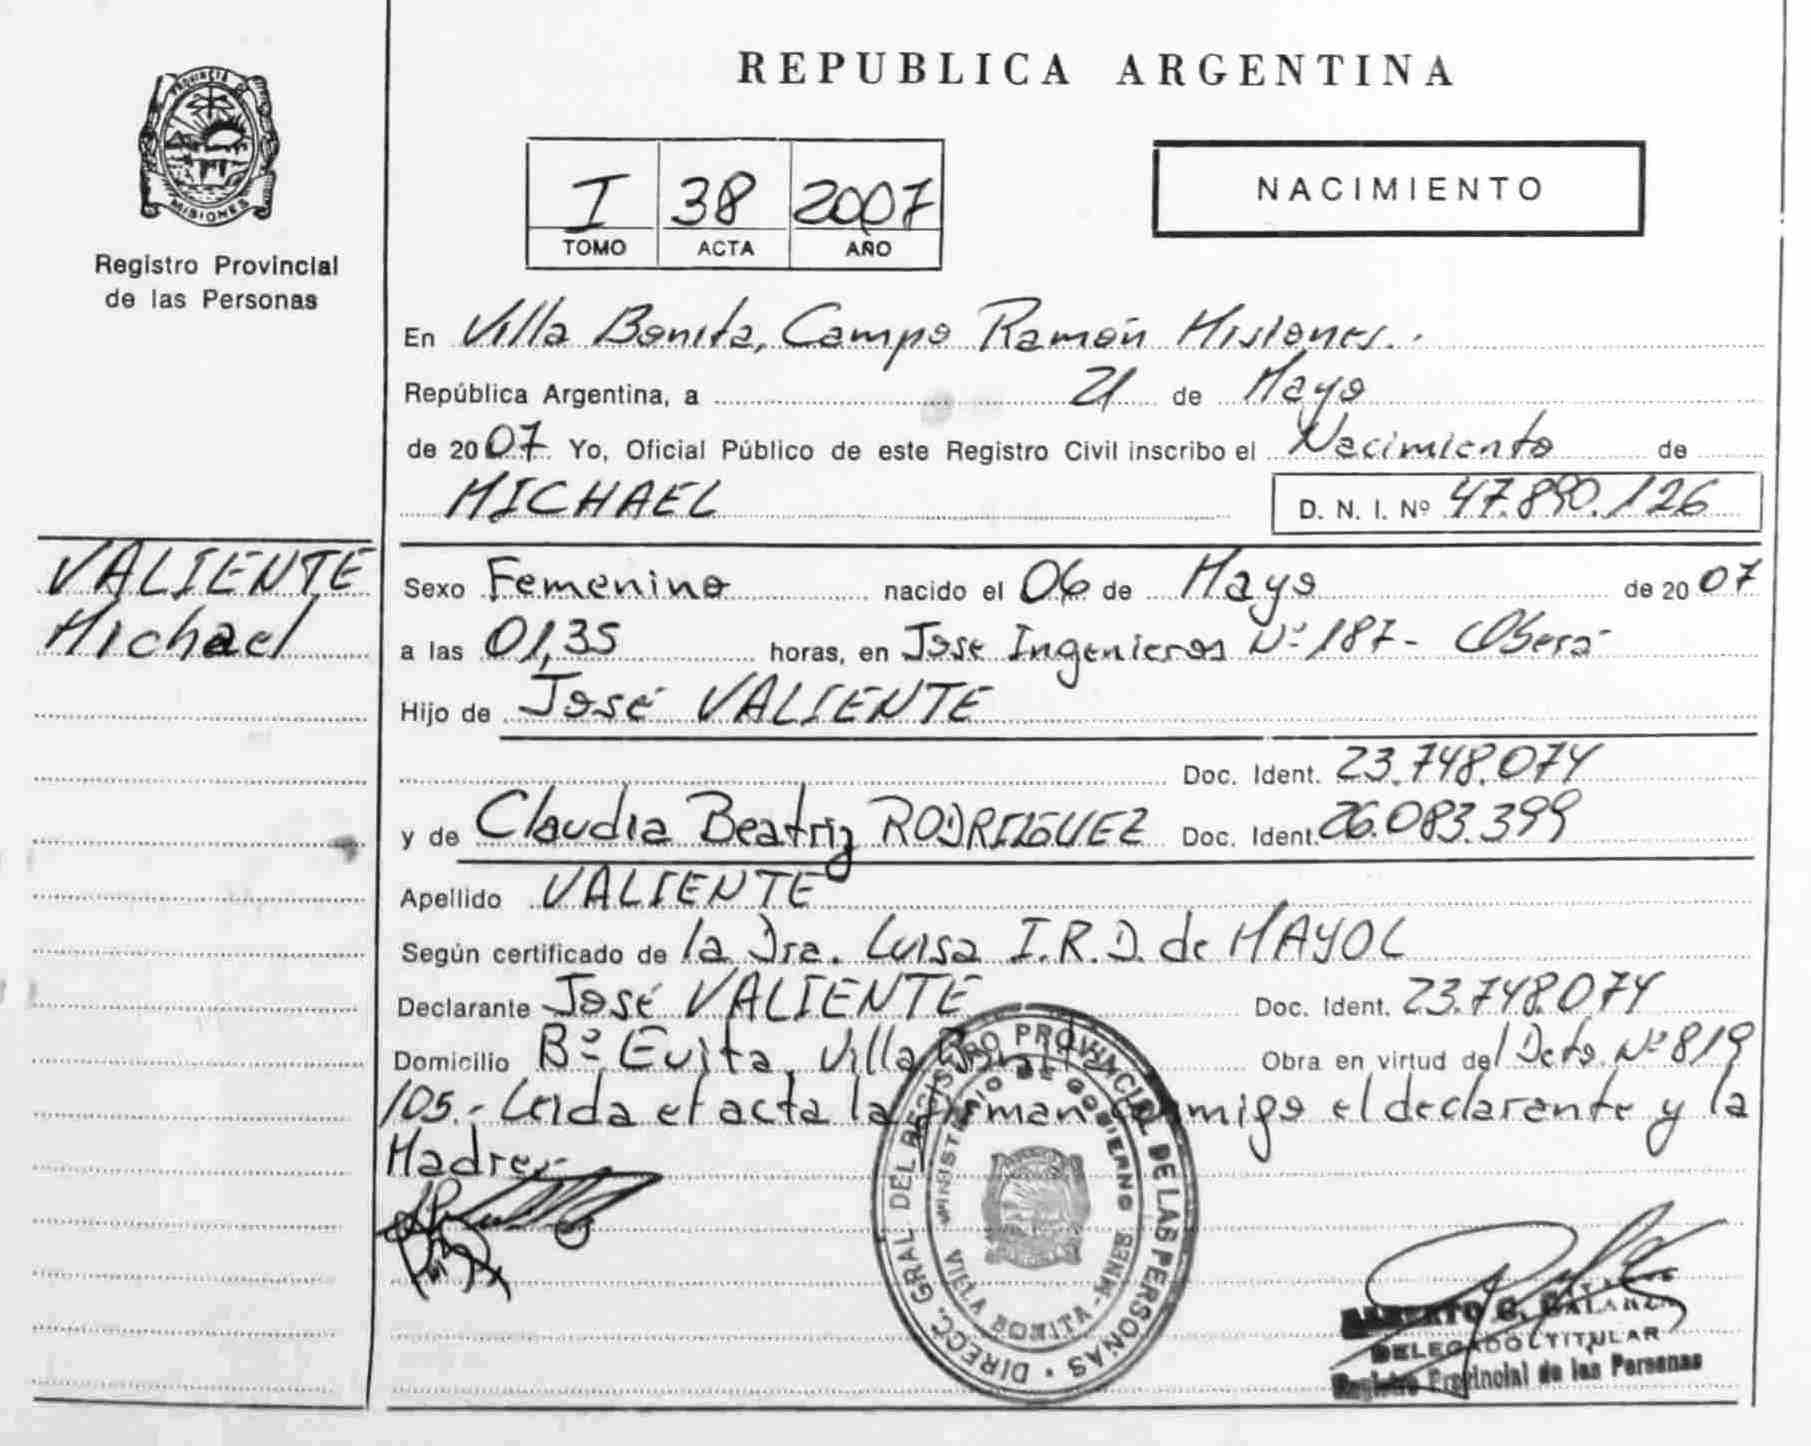 REPUBLICA ARGENTINA
PROVINCIA DE
MISIONES
Registro Provincial
de las Personas
I 38 2007
TOMO ACTA AÑO
NACIMIENTO
En Villa Bonita, Campo Ramón Misiones.
República Argentina, a 21 de Mayo
de 2007 Yo, Oficial Público de este Registro Civil inscribo el Nacimiento de
MICHAEL D. N. I. Nº 47.890.126
VALIENTE
Michael
Sexo Femenino nacido el 06 de Mayo de 2007
a las 01,35 horas, en Jose Ingenieros Nº 187 - Oberá
Hijo de José VALIENTE
Doc. Ident. 23.748.074
y de Claudia Beatriz RODRIGUEZ Doc. Ident. 26.083.399
Apellido VALIENTE
Según certificado de la Dra. Luisa I.R.D. de MAYOL
Declarante José VALIENTE Doc. Ident. 23.748.074
Domicilio Bº Evita, Villa Bonita Obra en virtud del Dcto. Nº 819
105.- Leida el acta la firman conmigo el declarante y la
Madre.-
DIRECC. GRAL. DEL REGISTRO PROVINCIAL DE LAS PERSONAS
MINISTERIO DE GOBIERNO
VILLA BONITA - MNES
DELEGADO TITULAR
Registro Provincial de las Personas